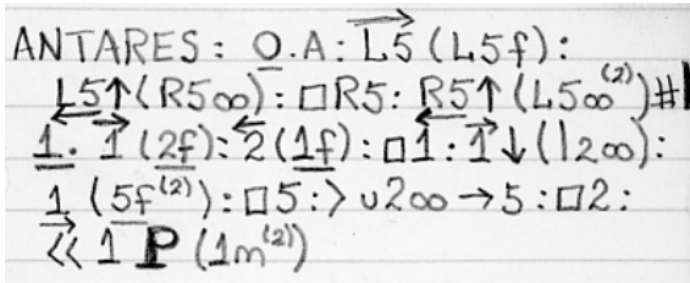 ANTARES: O.A: L5 (L5f):
L5↑(R5∞): □R5: R5↑(L5∞(2))#
1. 1 (2f): 2(1f): □1: 1↓(l2∞):
1 (5f(2)): □5:> u2∞→5: □2:
<< 1 P (1m(2))